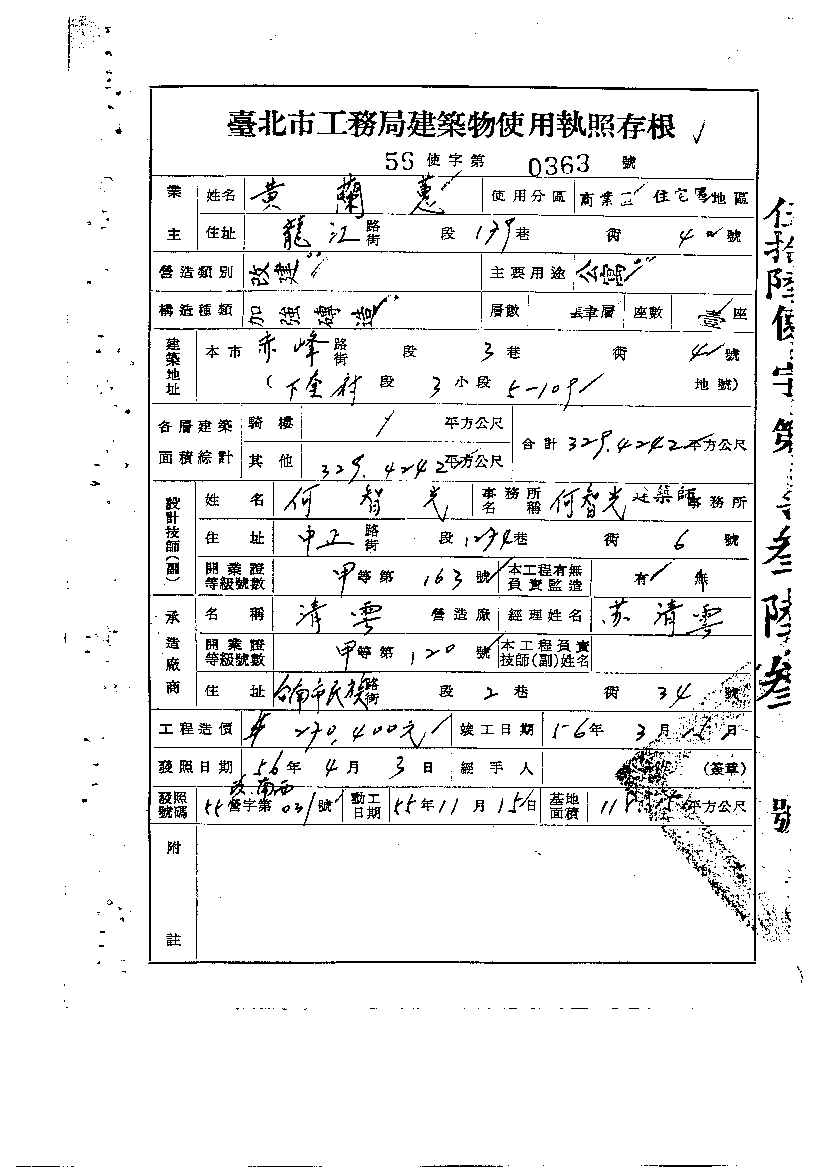 臺北市工務局建築物使用執照存根
56 使字第 0363 號
業主 姓名 黃蘭蕙 使用分區 商業區 住宅區 地區
住址 龍江路街 段 139巷 衖 4 號
營造類別 改建 主要用途 公寓
構造種類 加強磚造 層數 肆層 座數 座
建築地址 本市 赤峰路街 段 3巷 衖 4 號
(下奎府 段 3小段 5-109 地號)
各層建築面積綜計 騎樓 / 平方公尺 合計 329.4242 平方公尺
其他 329.4242 平方公尺
設計技師(副) 姓名 何智光 事務所名稱 何智光建築師事務所
住址 中正路街 段 巷 衖 6 號
開業證等級號數 甲等第 163 號 本工程有無負責監造 有 無
承造廠商 名稱 清雲 營造廠 經理姓名 苏清雲
開業證等級號數 甲等第 120 號 本工程負責技師(副)姓名
住址 台南市民族路街 段 2巷 衖 34 號
工程造價 270,400元 竣工日期 56年 3月 日
發照日期 56年 4月 3日 經手人 (簽章)
發照號碼 55 營字第 031 號 動工日期 55年11月15日 基地面積 平方公尺
附註
伍拾陸使字第 叁陸叁 號